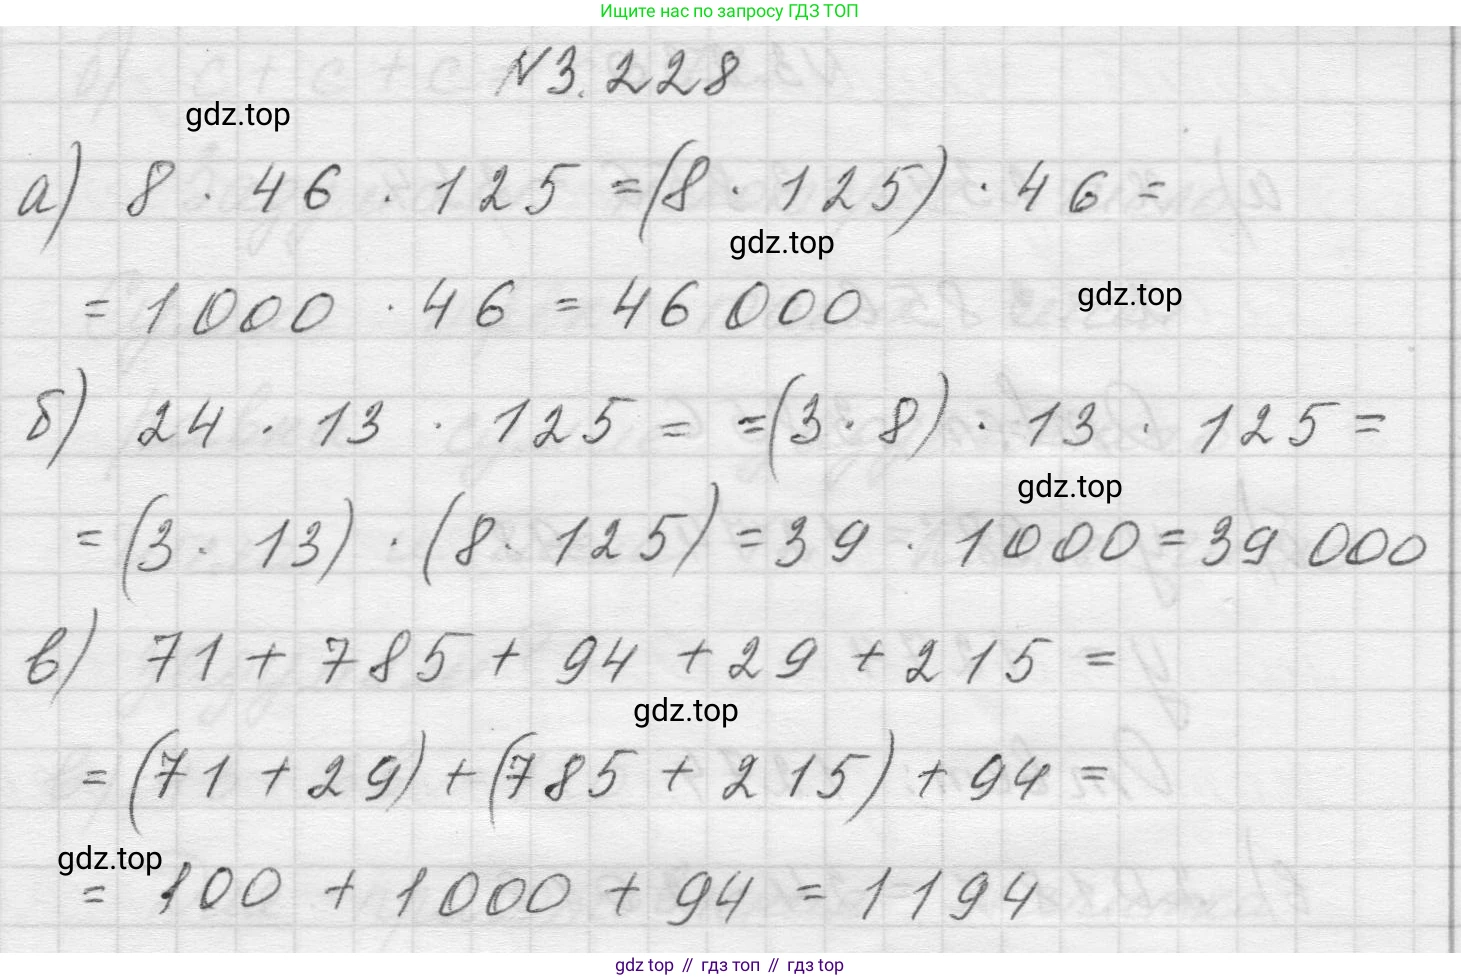 Ищите нас по запросу ГДЗ ТОП
№3.228
gdz.top
а) 8 · 46 · 125 = (8 · 125) · 46 =
gdz.top
= 1000 · 46 = 46 000
gdz.top
б) 24 · 13 · 125 = = (3 · 8) · 13 · 125 =
gdz.top
= (3 · 13) · (8 · 125) = 39 · 1000 = 39 000
в) 71 + 785 + 94 + 29 + 215 =
gdz.top
= (71 + 29) + (785 + 215) + 94 =
gdz.top
= 100 + 1000 + 94 = 1194
gdz top // гдз топ // гдз top